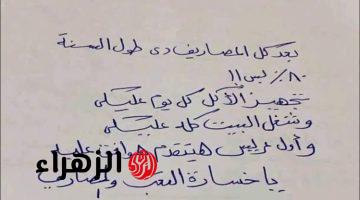 بعد كل المصاريف دي طول السنة
٨٠٪ بس !!
تجهيز الأكل كل يوم عليكى
وشغل البيت كله عليكى
وأول عريس هيتقدم هوافق عليه
يا خسارة التعب والمصاريف
الزهراء